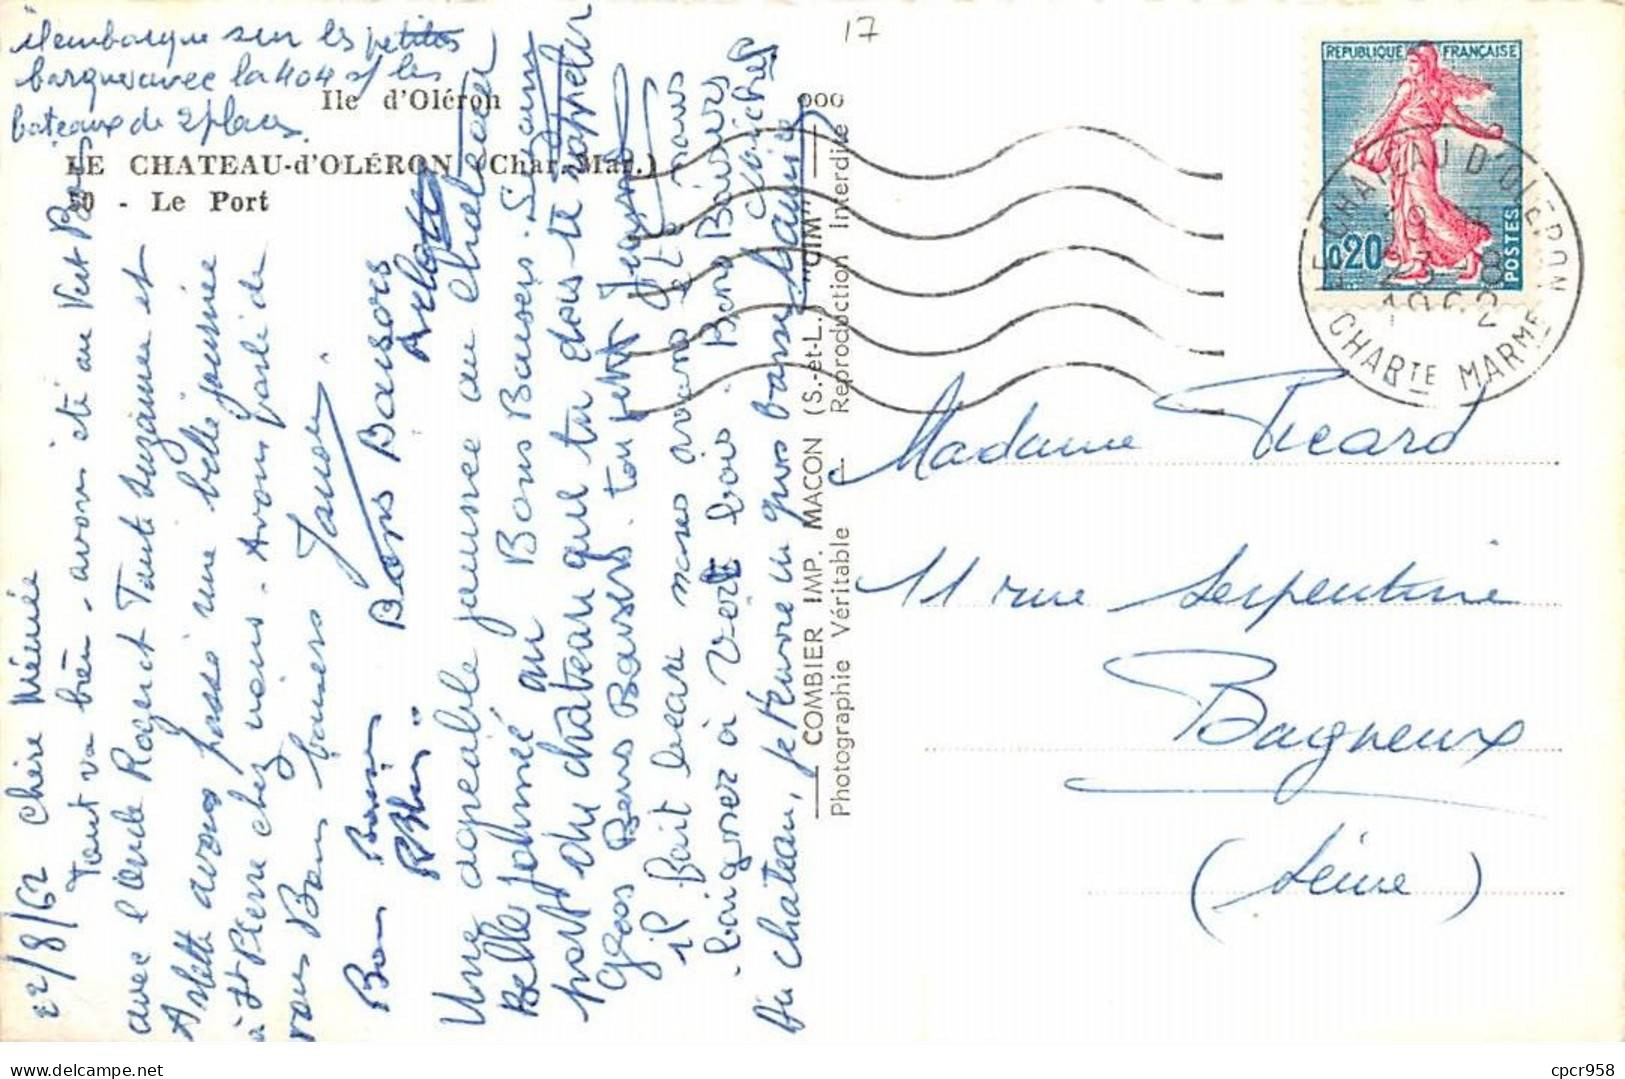 embarque sur les petites
barques avec la 404 s/ les
bateaux de 2 places.
Ile d'Oléron
LE CHATEAU-d'OLÉRON (Char.-Mar.)
10 - Le Port
22/8/62 Chère Mémée
Tout va bien - avons été au Vert Bois
avec l'oncle Roger et Tante Suzanne et
Arlette avons passé une belle journée
à St Pierre chez nous. Avons parlé de
vous Bons baisers
Bons Baisers
Bons Baisers Arlette
Une agréable journée au chateau
Belle journée au Bons Baisers. Suzanne
port du chateau que tu dois te rappeler
Gros Bons Baisers. ton petit
il fait beau nous avons et nous
baigner à Vert bois. Bons Baisers
Au chateau, je t'envoie un gros baiser
COMBIER IMP. MACON (S.-et-L.) "CIM"
Photographie Véritable - Reproduction Interdite
17
REPUBLIQUE FRANÇAISE
0,20
POSTES
LE CHATEAU D'OLERON
23 - 8
1962
CHARTE MARME
Madame Picard
11 rue Serpentine
Bagneux
(Seine)
cpcr958